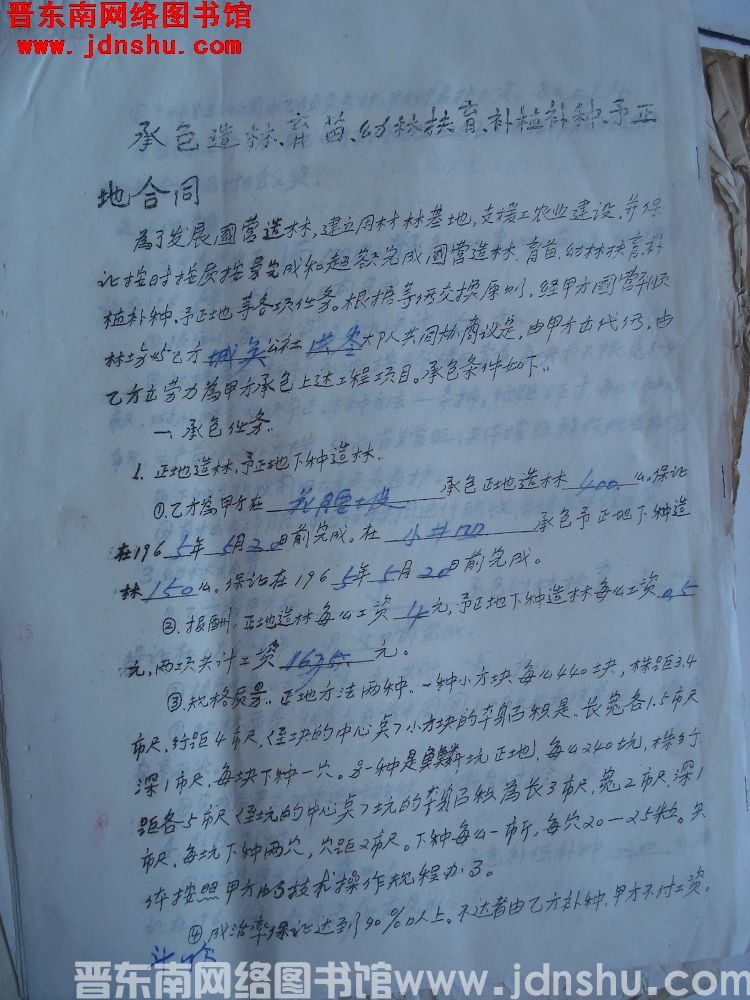 晋东南网络图书馆
www.jdnshu.com
承包造林、育苗、幼林扶育、补植补种、予正
地合同
為了发展國营造林,建立用材林基地,支援工农业建设,并保
证按时按质按量完成和超额完成國营造林、育苗、幼林扶育、补
植补种、予正地等各项任务。根据等价交换原则,经甲方國营
林场与乙方 公社 大队共同协商议定,由甲方出代价,由
乙方出劳力為甲方承包上述工程项目。承包条件如下:
一、承包任务:
1. 正地造林、予正地下种造林:
①.乙方為甲方在 承包正地造林 400 亩。保证
在196 5 年 5 月 20 日前完成。在 小井 承包予正地下种造
林 150 亩。保证在 196 5 年 5 月 20 日前完成。
②.报酬:正地造林每亩工资 4 元,予正地下种造林每亩工资 0.5
元,两项共计工资 1675 元。
③.规格质量:正地方法两种:一种小方块每亩440块,株距3.4
市尺,行距4市尺,(至块的中心点)小方块的本身面积是:长宽各1.5市尺
深1市尺,每块下种一穴。另一种是鱼鳞坑正地,每亩240坑,株行
距各5市尺(至坑的中心点)坑的本身面积為长3市尺,宽2市尺,深1
市尺,每坑下种两穴,穴距2市尺。下种每亩一市斤,每穴20—25粒。具
体按照甲方的技术操作规程办了。
④成活率保证达到90%以上。不达者由乙方补种,甲方不付工资。
晋东南网络图书馆www.jdnshu.com